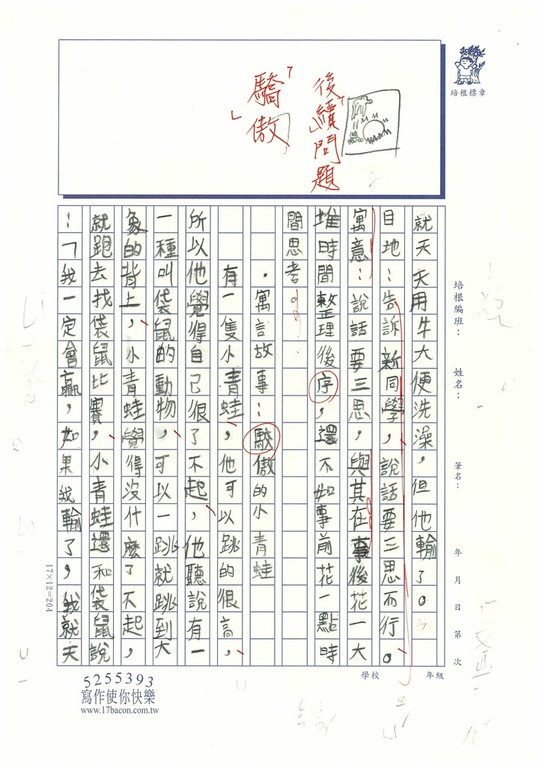 後續問題
「驕傲」
培根標章
培根編班： 姓名： 筆名： 年 月 日 第 次
就天天用牛大便洗澡，但他輸了。
目地：告訴新同學，說話要三思而行。
寓意：說話要三思，與其在事後花一大
堆時間整理後序，還不如事前花一點時
間思考。
．寓言故事：驕傲的小青蛙
有一隻小青蛙，他可以跳的很高，
所以他覺得自己很了不起，他聽說有一
一種叫袋鼠的動物，可以一跳就跳到大
象的背上，小青蛙覺得沒什麼了不起，
就跑去找袋鼠比賽，小青蛙還和袋鼠說
：「我一定會贏，如果我輸了，我就天
17×12=204
學校 年級
5255393
寫作使你快樂
www.17bacon.com.tw